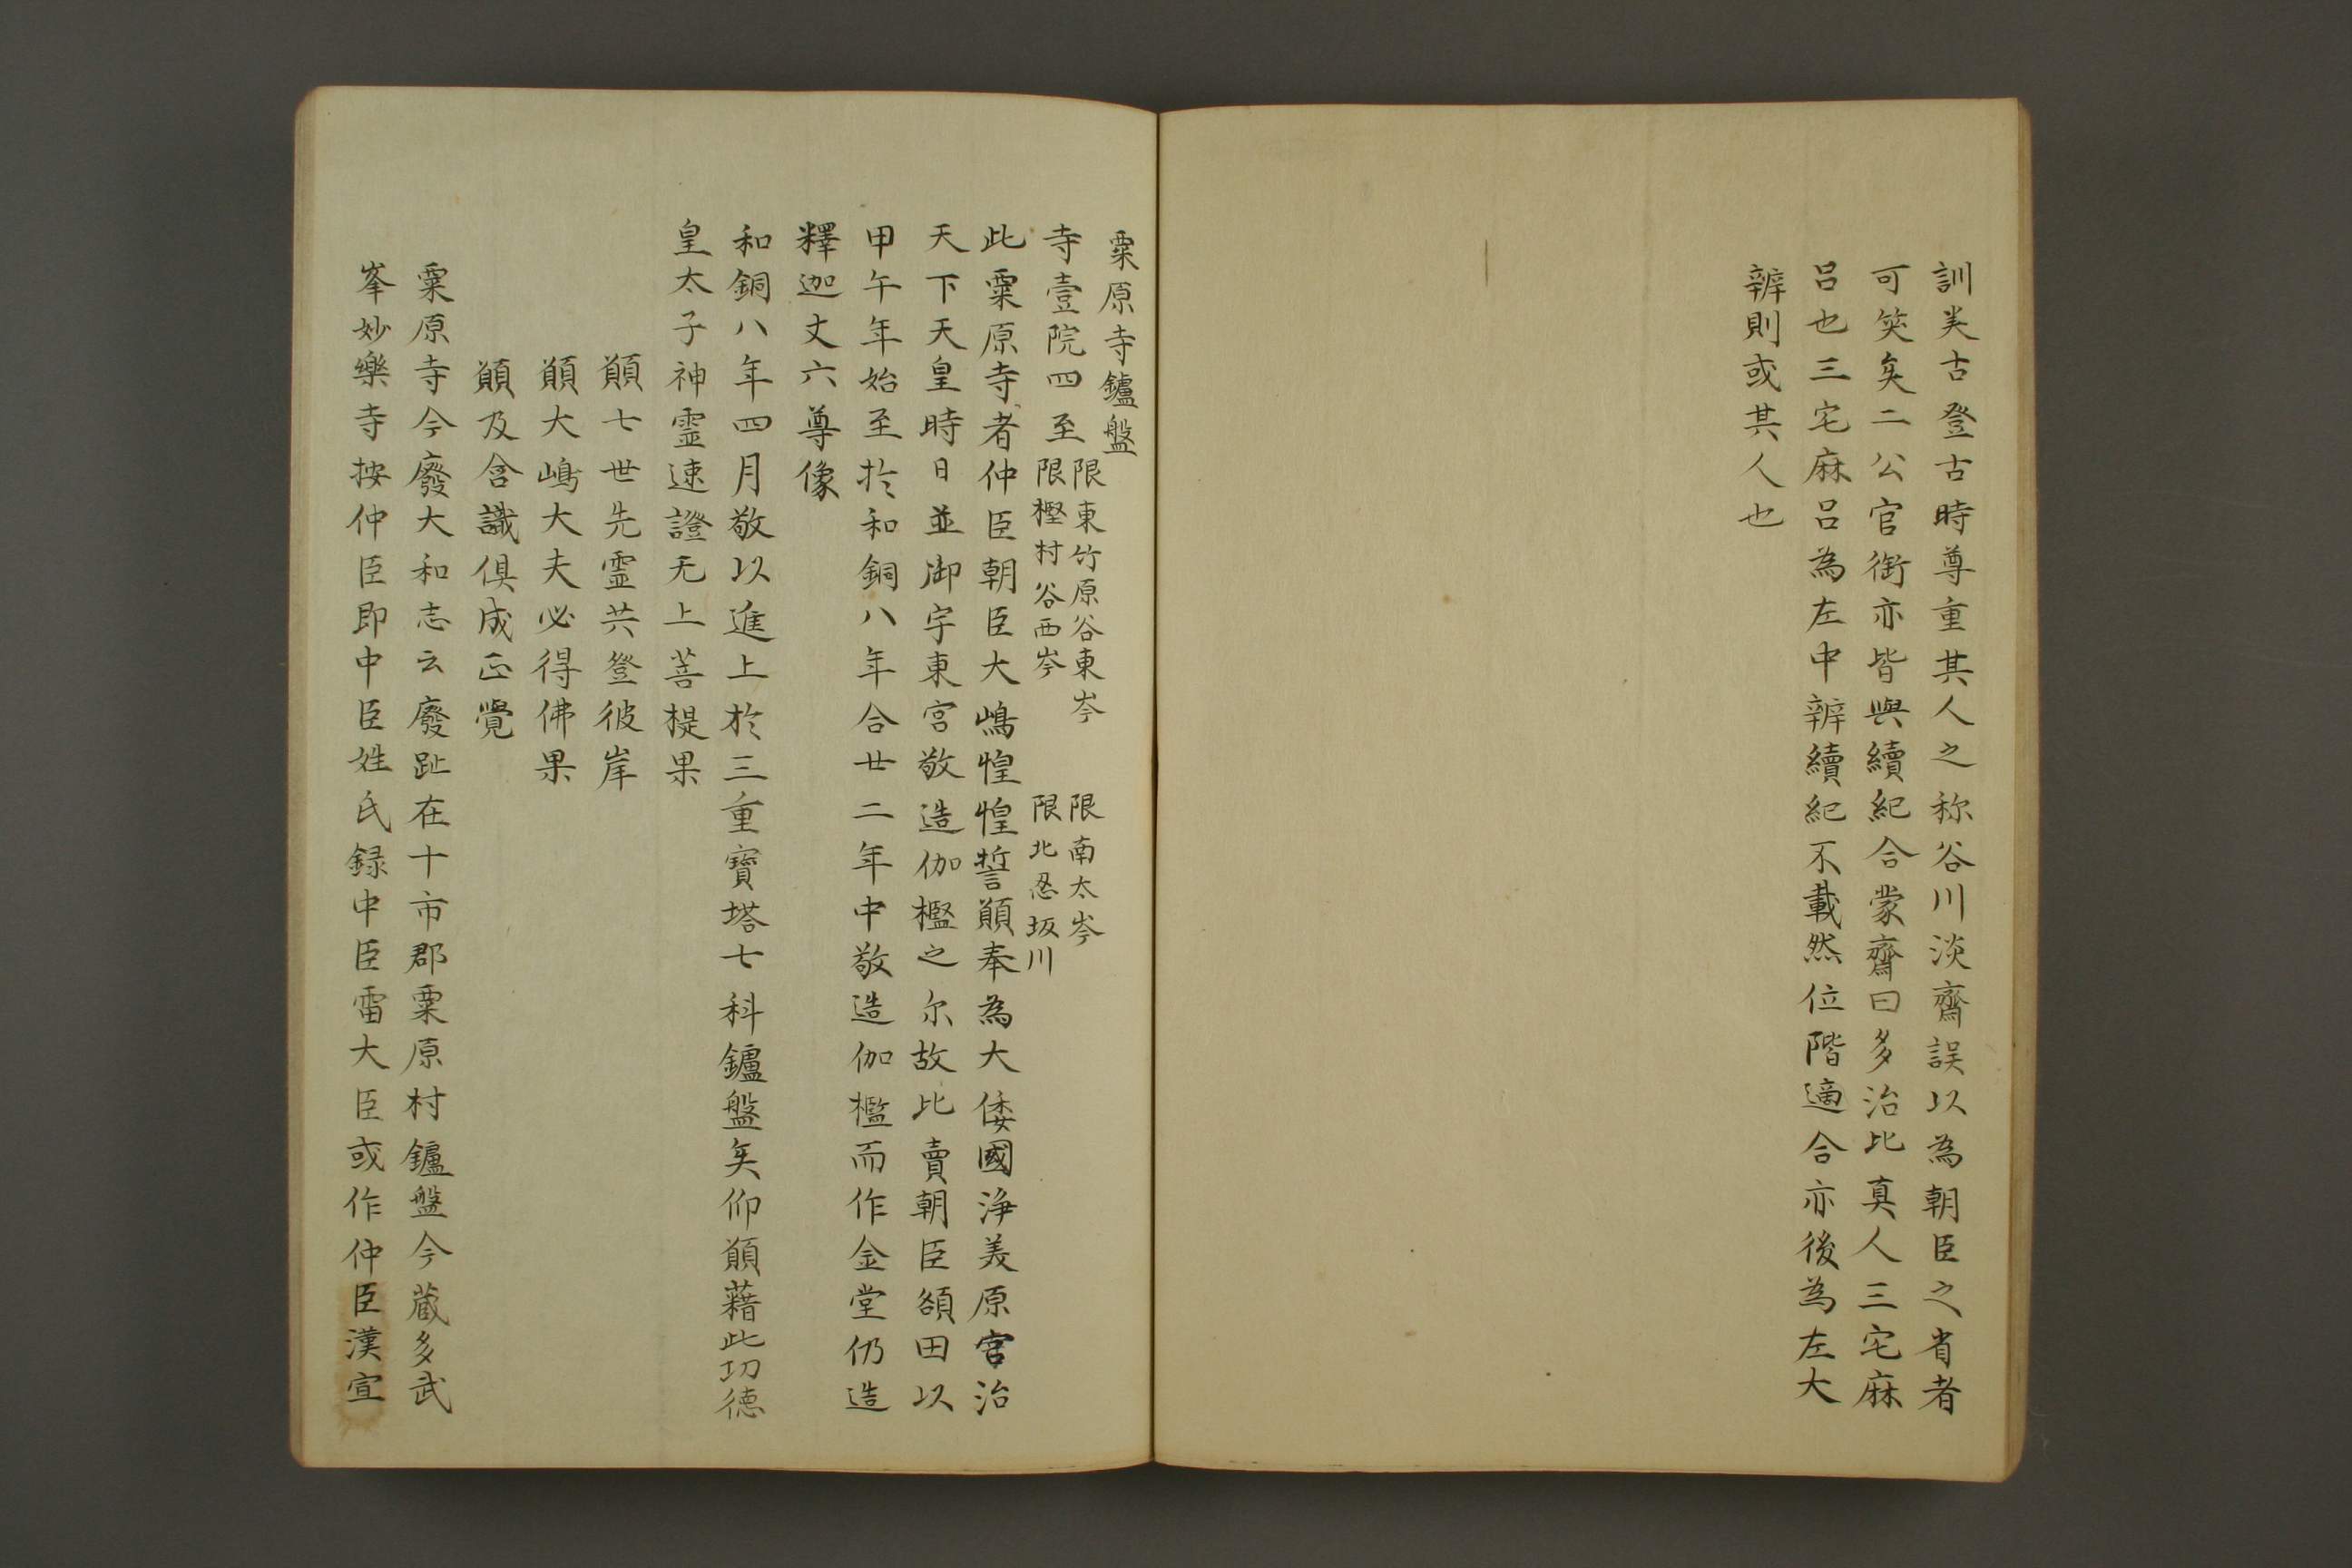 訓美古登古時尊重其人之称谷川淡齋誤以為朝臣之省者
可笑矣二公官銜亦皆與續紀合蒙齋曰多治比真人三宅麻
呂也三宅麻呂為左中辨續紀不載然位階適合亦後為左大
辨則或其人也
粟原寺鑪盤
寺壹院四至限東竹原谷東岑 限南太岑
限樫村谷西岑 限北忍坂川
此粟原寺者仲臣朝臣大嶋惶惶誓願奉為大倭國浄美原宮治
天下天皇時日並御宇東宮敬造伽檻之尓故比賣朝臣額田以
甲午年始至於和銅八年合廿二年中敬造伽檻而作金堂仍造
釋迦丈六尊像
和銅八年四月敬以進上於三重寳塔七科鑪盤矣仰願藉此功德
皇太子神霊速證无上菩提果
願七世先霊共登彼岸
願大嶋大夫必得佛果
願及含識倶成正覺
粟原寺今廢大和志云廢趾在十市郡粟原村鑪盤今蔵多武
峯妙樂寺按仲臣即中臣姓氏録中臣雷大臣或作仲臣漢宣